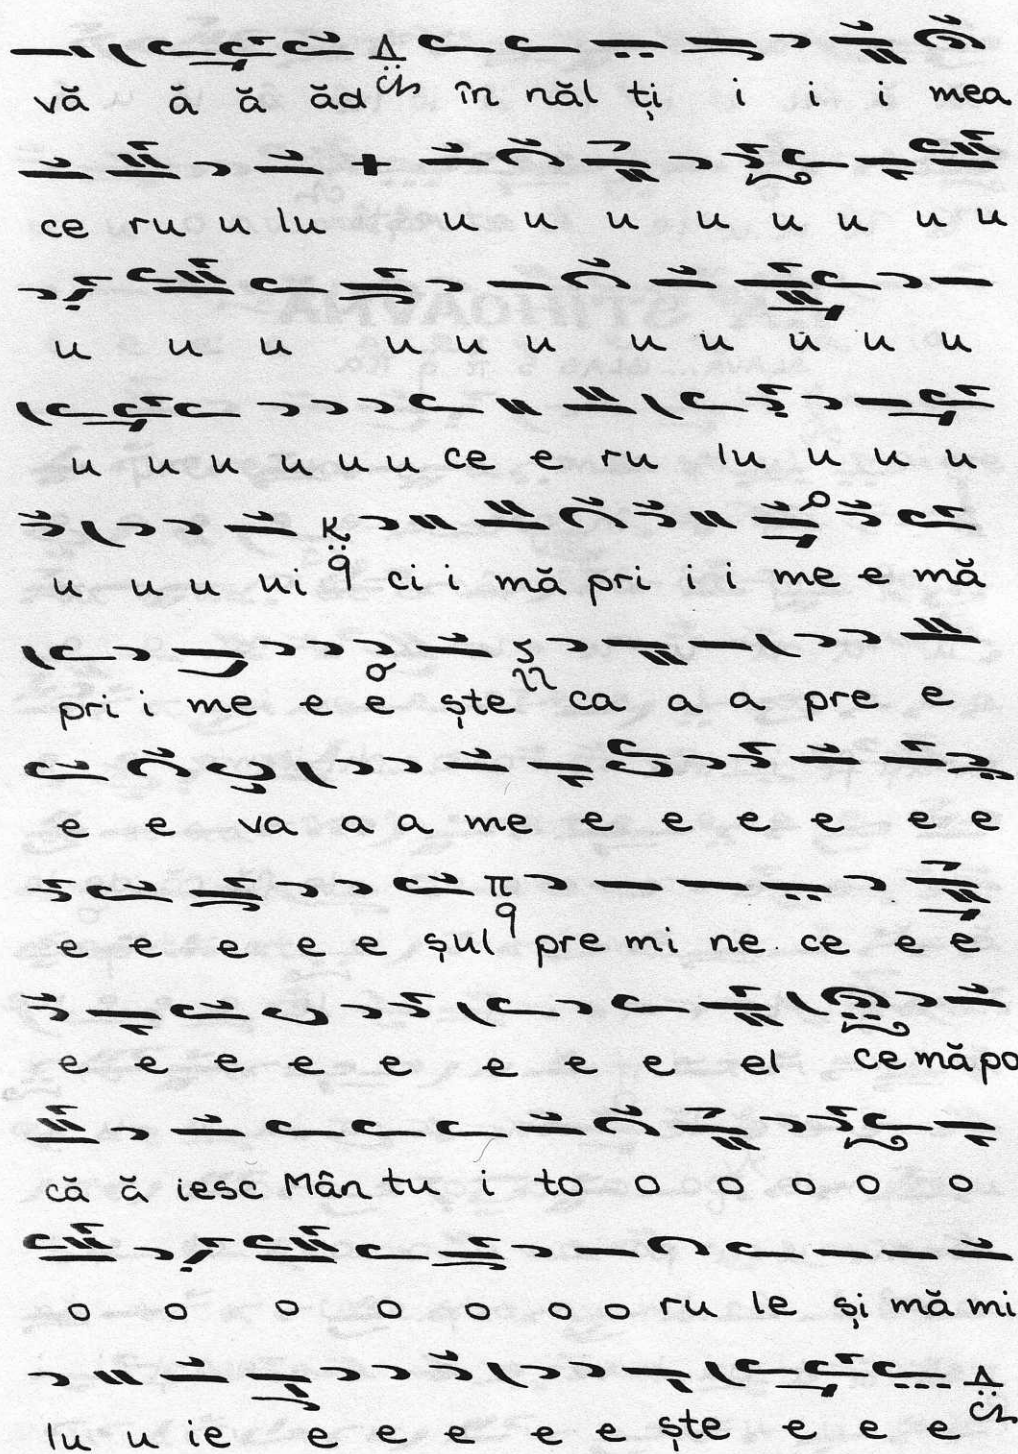 vă ă ă ăd în năl ți i i i mea
ce ru u lu u u u u u u u u
u u u u u u u u u u u
u u u u u u ce e ru lu u u u
u u u ui ci i mă pri i i me e mă
pri i me e e ște ca a a pre e
e e va a a me e e e e e e
e e e e e șul pre mi ne ce e e
e e e e e e e e el ce mă po
că ă iesc Mân tu i to o o o o o
o o o o o o o ru le și mă mi
lu u ie e e e e e ște e e e